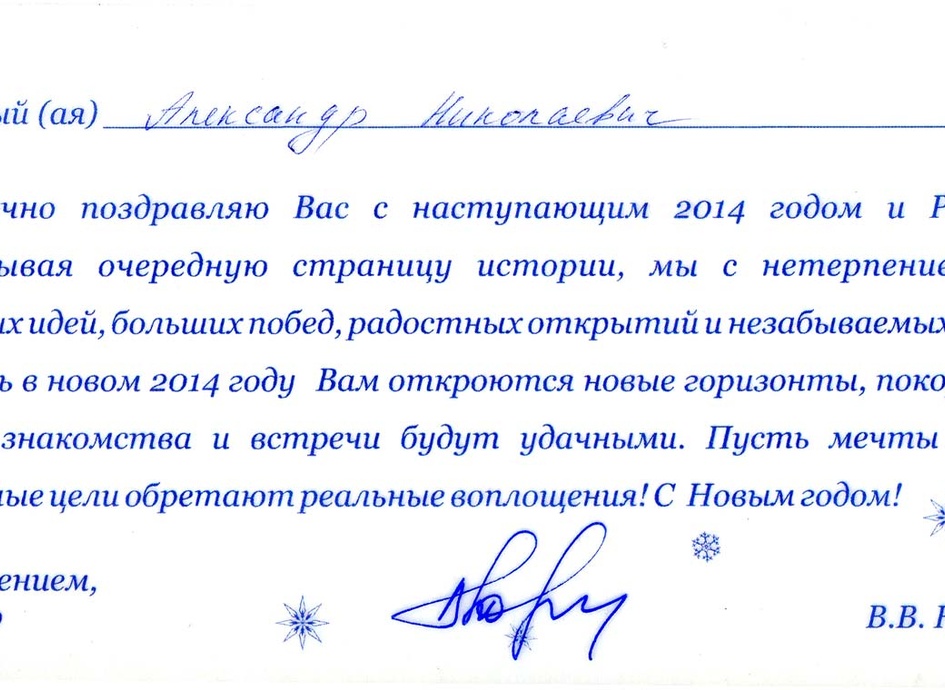 ый (ая) Александр Николаевич
чно поздравляю Вас с наступающим 2014 годом и Р
ывая очередную страницу истории, мы с нетерпение
их идей, больших побед, радостных открытий и незабываемых
ь в новом 2014 году Вам откроются новые горизонты, поко
знакомства и встречи будут удачными. Пусть мечты
ные цели обретают реальные воплощения! С Новым годом!
ением,
В.В.